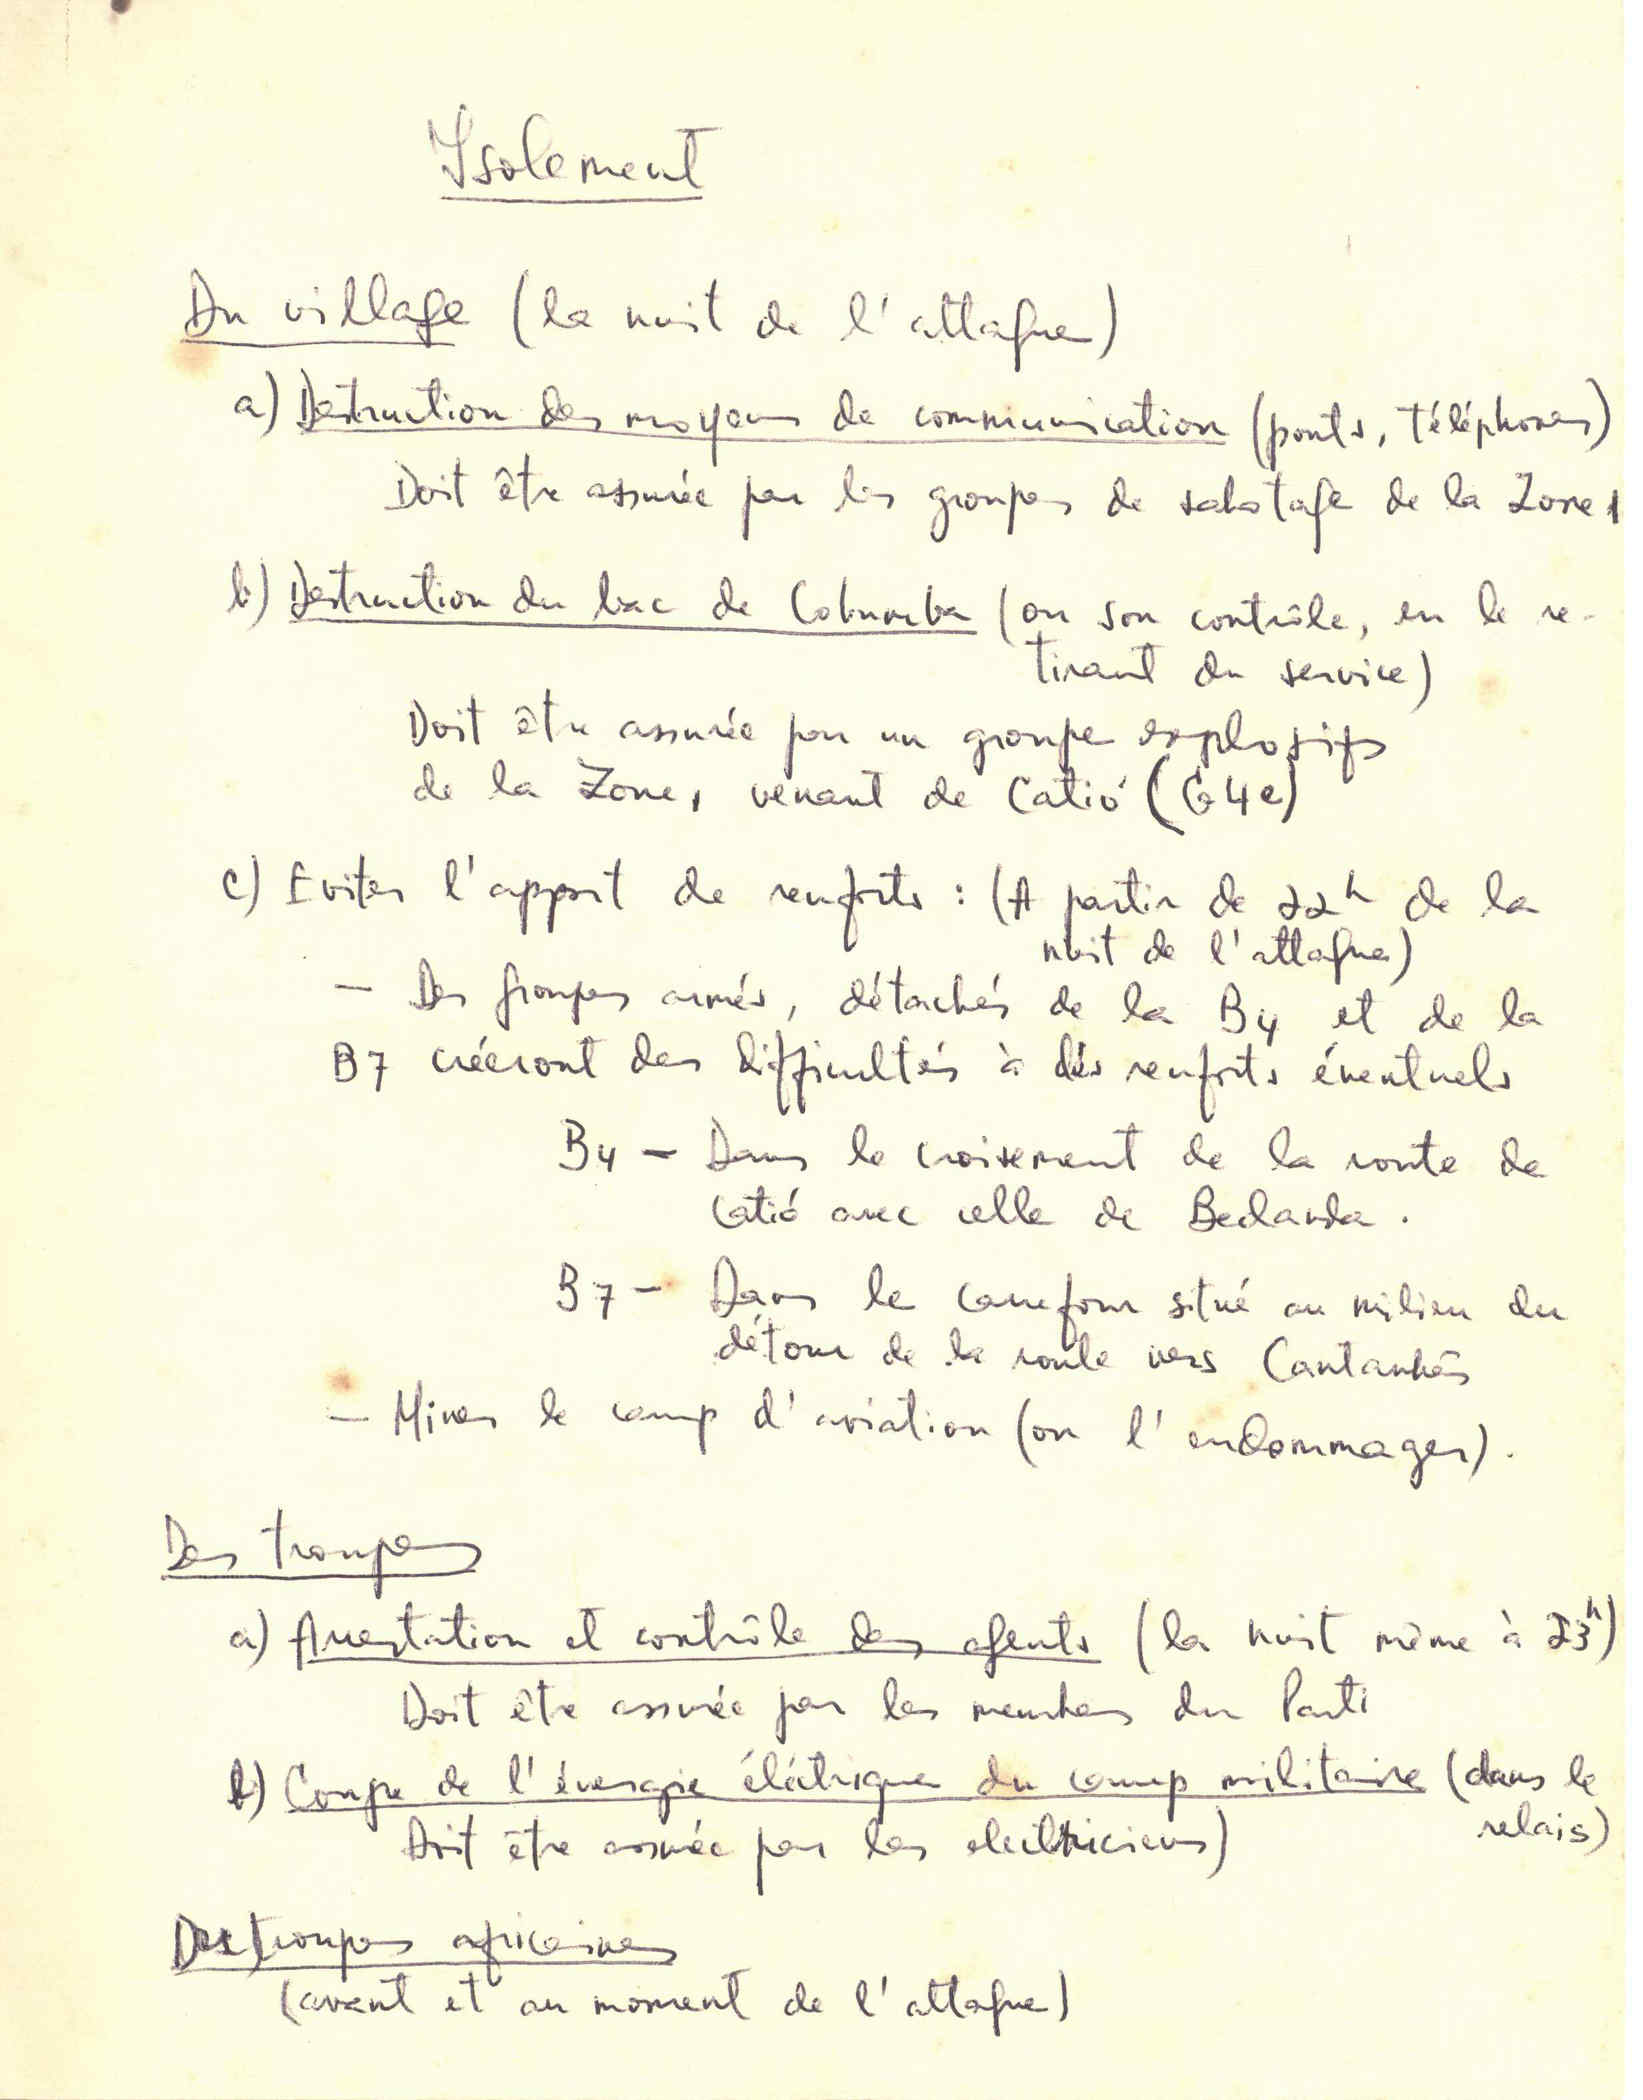 Isolement
Du village (la nuit de l'attaque)
a) Destruction des moyens de communication (ponts, téléphones)
Doit être assurée par les groupes de sabotage de la Zone 1
b) Destruction du bac de Cobumba (ou son contrôle, en le re-
tirant du service)
Doit être assurée par un groupe explosifs
de la Zone 1 venant de Catió (G4e)
c) Eviter l'apport de renforts : (A partir de 22h de la
nuit de l'attaque)
- Des groupes armés, détachés de la B4 et de la
B7 créeront des difficultés à des renforts éventuels
B4 - Dans le croisement de la route de
Catió avec celle de Bedanda.
B7 - Dans le carrefour situé au milieu du
détour de la route vers Cantanhês
- Miner le camp d'aviation (ou l'endommager).
Des troupes
a) Arrestation et contrôle des agents (la nuit même à 23h)
Doit être assurée par les membres du Parti
b) Coupe de l'énergie éléctrique du camp militaire (dans le
relais)
Doit être assurée par les electriciens)
Des troupes africaines
(avant et au moment de l'attaque)